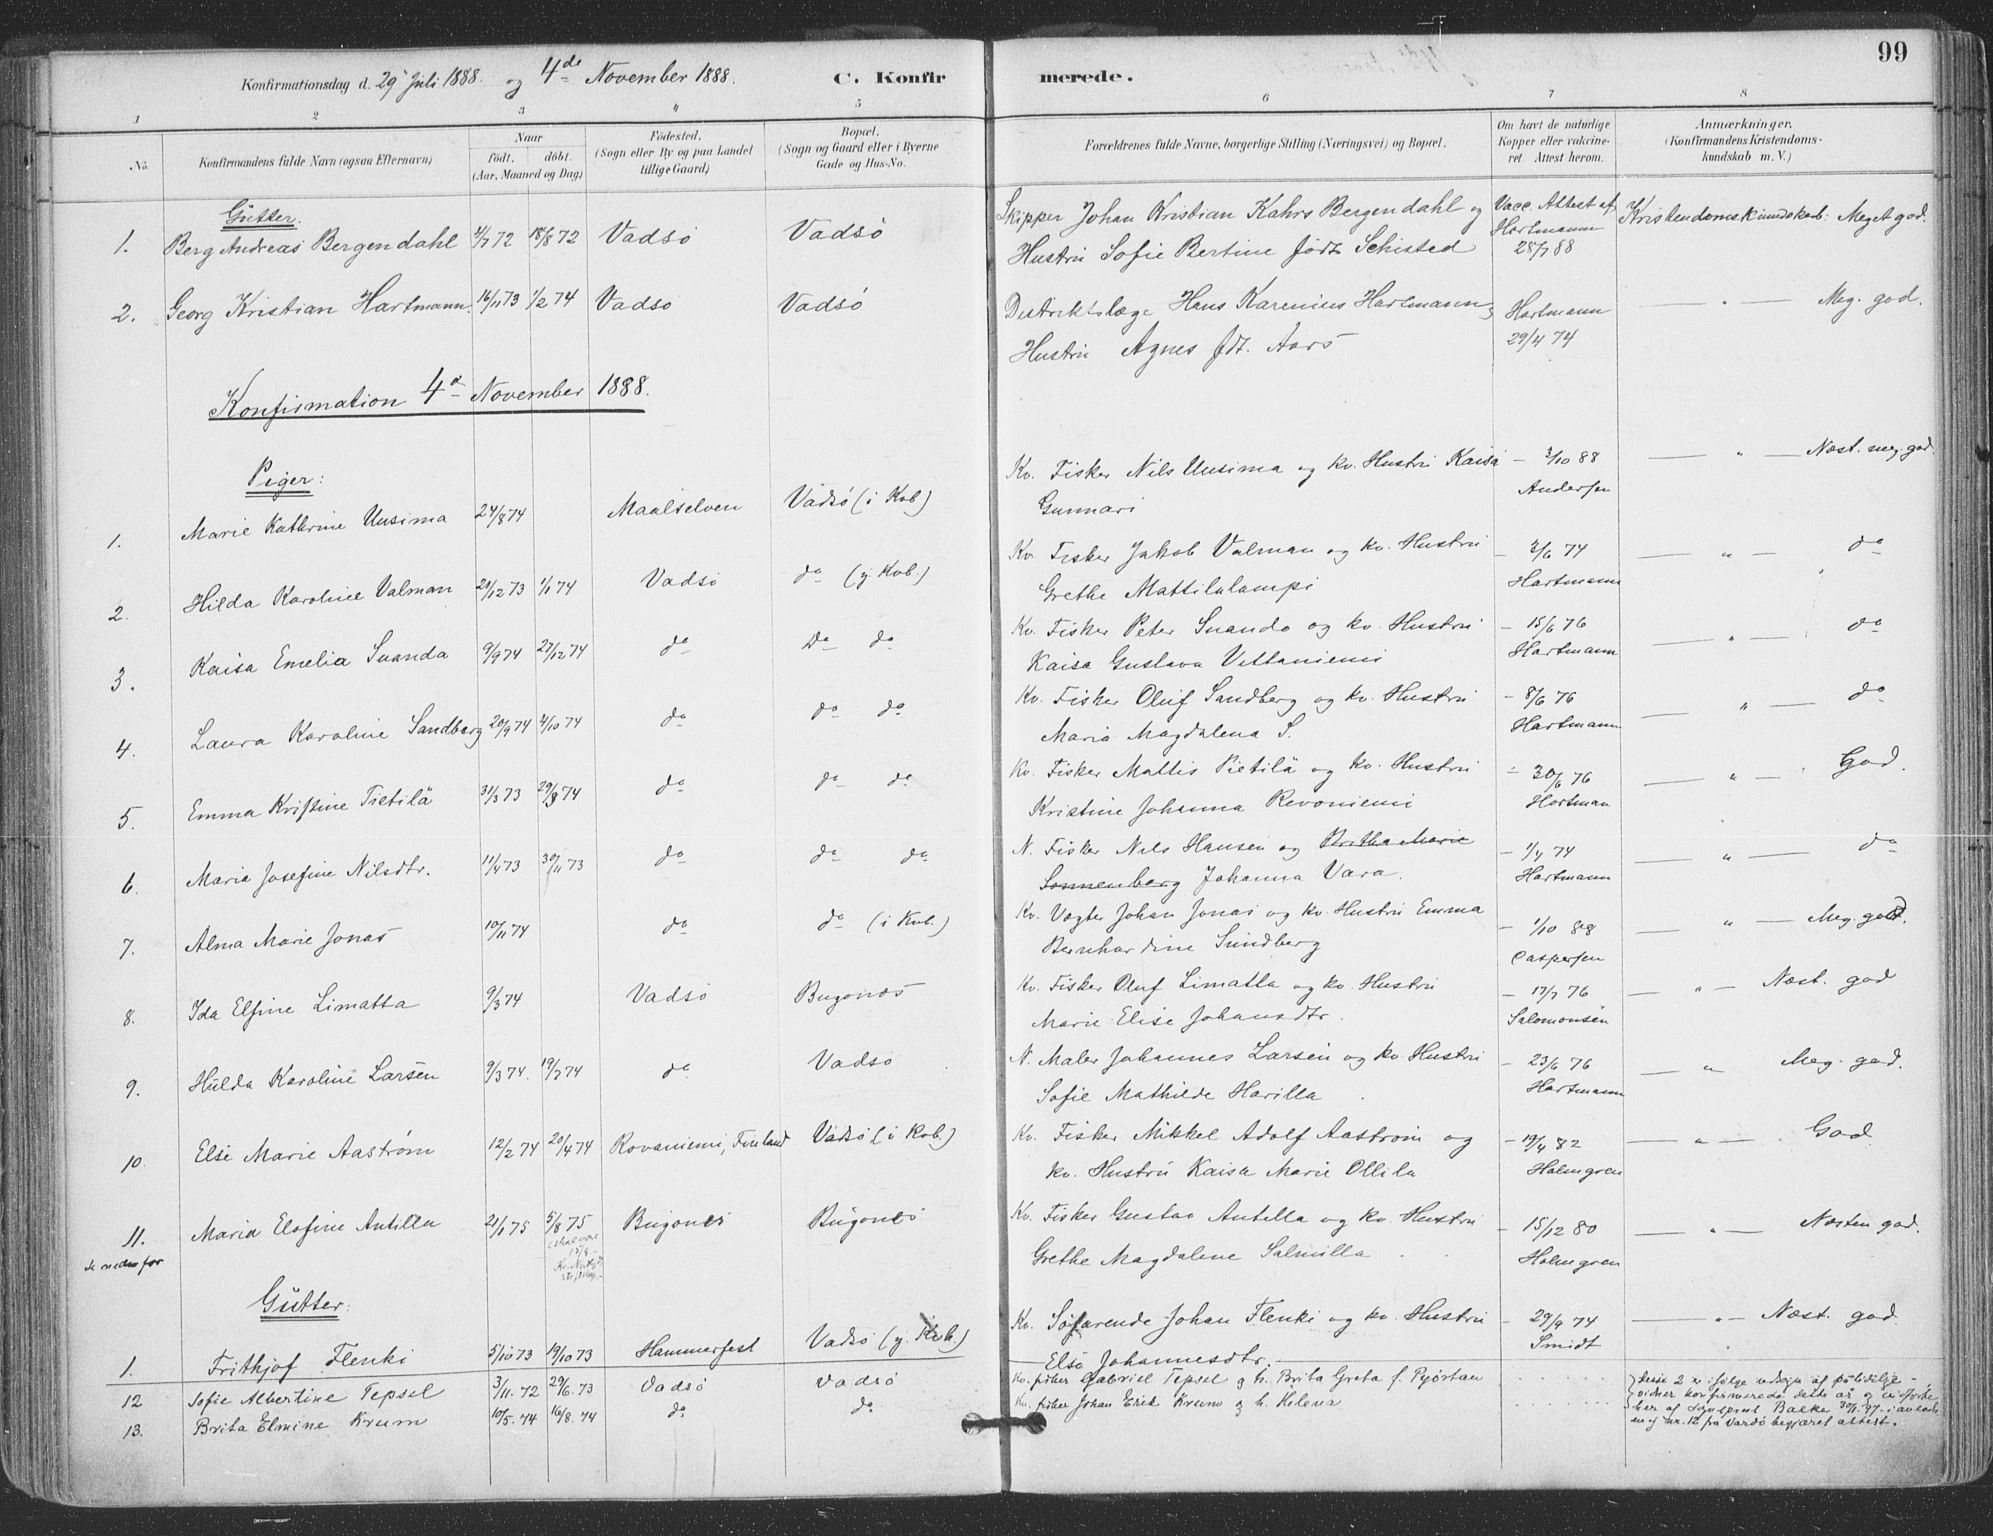 99
Konfirmationsdag d. 29 Juli 1888. og 4de November 1888. C. Konfirmerede.
1 2 3 " 5 6 7 8
No. Konfirmandens fulde Navn (ogsaa Efternavn)
Naar født. døbt. (Aar, Maaned og Dag)
Fødested. (Sogn eller By og paa Landet tillige Gaard)
Bopæl. (Sogn og Gaard eller i Byerne Gade og Hus-No.
Forældrenes fulde Navne, borgerlige Stilling (Næringsvei) og Bopæl.
Om havt de naturlige Kopper eller vakcineret. Attest herom.
Anmærkninger. (Konfirmandens Kristendomskundskab m. V.)
Gutter.
1. Berg Andreas Bergendahl 4/7 72 18/8 72 Vadsö Vadsö Skipper Johan Kristian Kahrs Bergendahl og Vacc. Attest af Kristendomskundskab: Meget god.
Hustru Sofie Bertine født Schisted Hartmann 28/7 88
2. Georg Kristian Hartmann. 16/11 73 1/2 74 Vadsö Vadsö Distriktslæge Hans Karenius Hartmann Hartmann — " — Meg. god.
Hustru Agnes fdt. Aars 29/4 74
Konfirmation 4d November 1888.
Piger:
1. Marie Kathrine Uusima 24/8 74 Maalselven Vadsö (i Kvb.) Kv. Fisker Nils Uusima og kv. Hustru Kaisa — 3/10 88 — " — Næst. meg. god.
Gunnari Andersen
2. Hilda Karoline Valman 29/12 73 1/1 74 Vadsö do (y. Kvb.) Kv. Fisker Jakob Valman og kv. Hustru — 2/6 74 — " — do
Grethe Mattilalampi Hartmann
3. Kaisa Emelia Suanda 9/9 74 27/12 74 do Do do Kv. Fisker Peter Suando og kv. Hustru — 15/6 76 — " — do
Kaisa Gustava Vittaniemi Hartmann
4. Laura Karoline Sandberg 20/9 74 4/10 74 do do do Kv. Fisker Oluf Sandberg og kv. Hustru — 8/6 76 — " — do
Maria Magdalena S. Hartmann
5. Emma Kristine Pietilä 31/3 73 29/3 74 do do do Kv. Fisker Mattis Pietilä og kv. Hustru — 30/6 76 — " — God.
Kristine Johanna Revoniemi Hartman
6. Maria Josefine Nilsdtr. 11/4 73 30/11 73 do do do N. Fisker Nils Hansen og Britha Marie — 1/4 74 — " — do
Sonnenberg Johanna Vara. Hartmann
7. Alma Marie Jonas 10/11 74 do do (i Kvb.) Kv. Vægter Johan Jonas og kv. Hustru Emma — 1/10 88 — " — Meg. god.
Bernhardine Sundberg Caspersen
8. Ida Elfine Limatta 9/3 74 Vadsö Bugönes Kv. Fisker Oluf Limatta og kv. Hustru — 17/7 76 — " — Næst. god
Marie Elise Johansdtr. Salomonsen
9. Hulda Karoline Larsen 9/3 74. 19/7 74 do Vadsö N. Maler Johannes Larsen og kv. Hustru — 23/6 76 — " — Meg. god.
Sofie Mathilde Harilla Hartmann
10. Else Marie Aaström 12/2 74 20/4 74 Rovaniemi, Finland Vadsö (i Kvb.) Kv. Fisker Mikkel Adolf Aaström og — 19/4 82 — " — God
kv. Hustru Kaisa Marie Ollila Holmgren
11. Maria Elofine Antilla 21/1 75 5/8 75 Bugönes Bugönes Kv. Fisker Gustav Antella og kv. Hustru — 15/12 80 — " — Næsten god.
se nedenfor Grethe Magdalene Salmilla Holmgren
Gutter:
1. Frithjof Flenki 5/10 73 19/10 73 Hammerfest Vadsö (y. Kvb.) Kv. Søfarende Johan Flenki og kv. Hustru — 29/9 74 — " — Næst. god.
Else Johannesdtr. Smidt
12 Sofie Albertine Tepsel 3/11. 72 29/6. 73 Vadsö Vadsö Kv. fisker Gabriel Tepsel og h. Brita Greta f. Pyörtan Disse 2 er ifølge udsagn af pålidelige
13. Brita Elmine Krum 10/5. 74 16/8. 74 do do Kv. fisker Johan Erik Krum og h. Helena vidner konfirmerede dette år og indførte
her af sogneprest Balke 30/1. 97.
nr. 12 på Vardö begjæret attest.